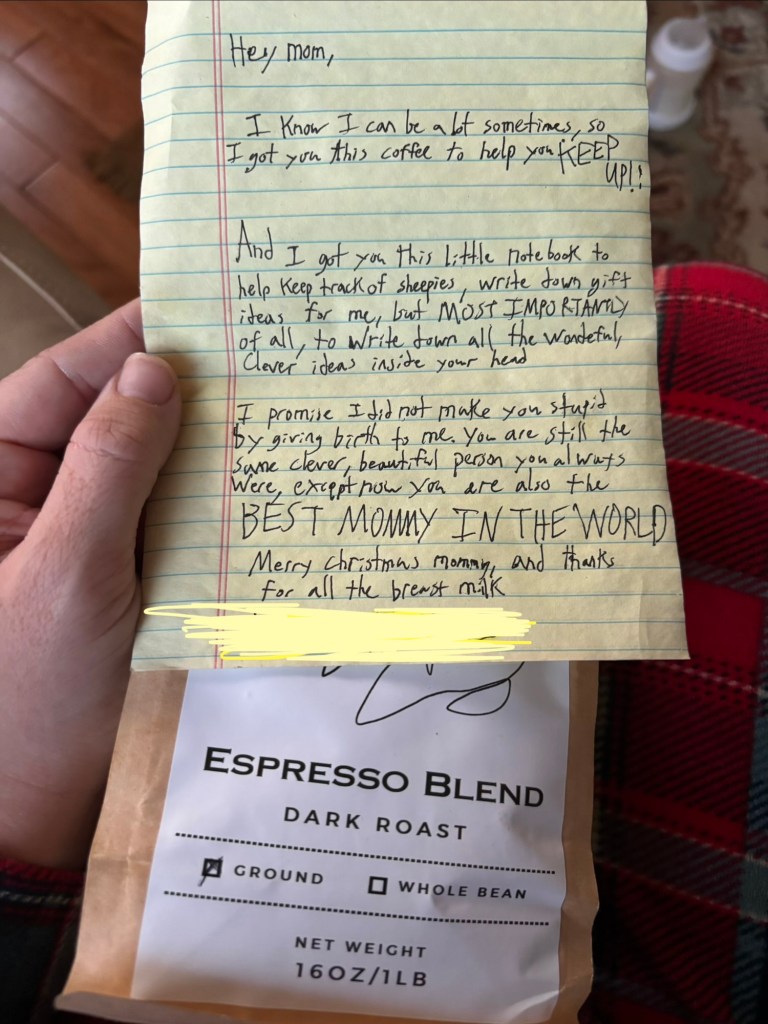 Hey mom,
I know I can be a lot sometimes, so
I got you this coffee to help you KEEP
UP!!
And I got you this little notebook to
help keep track of sheepies, write down gift
ideas for me, but MOST IMPORTANTLY
of all, to write down all the wondeful,
clever ideas inside your head
I promise I did not make you stupid
by giving birth to me. You are still the
same clever, beautiful person you always
were, except now you are also the
BEST MOMMY IN THE WORLD
Merry christmas mommy, and thanks
for all the breast milk
ESPRESSO BLEND
DARK ROAST
GROUND WHOLE BEAN
NET WEIGHT
16OZ/1LB